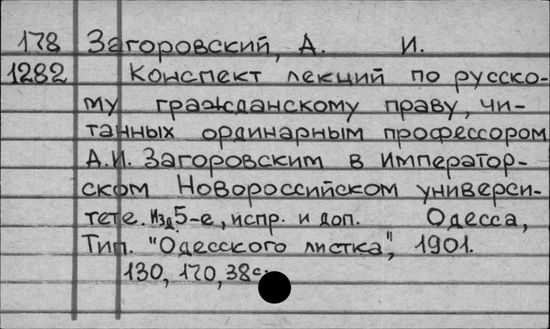 178 Загоровский, А. И.
1282 Конспект лекций по русско-
му гражданскому праву, чи-
танных ординарным профессором
А.И. Загоровским в император-
ском Новороссийском универси-
тете. Изд. 5-е, испр. и доп. Одесса,
Тип. "Одесского листка", 1901.
130, 170, 38с.